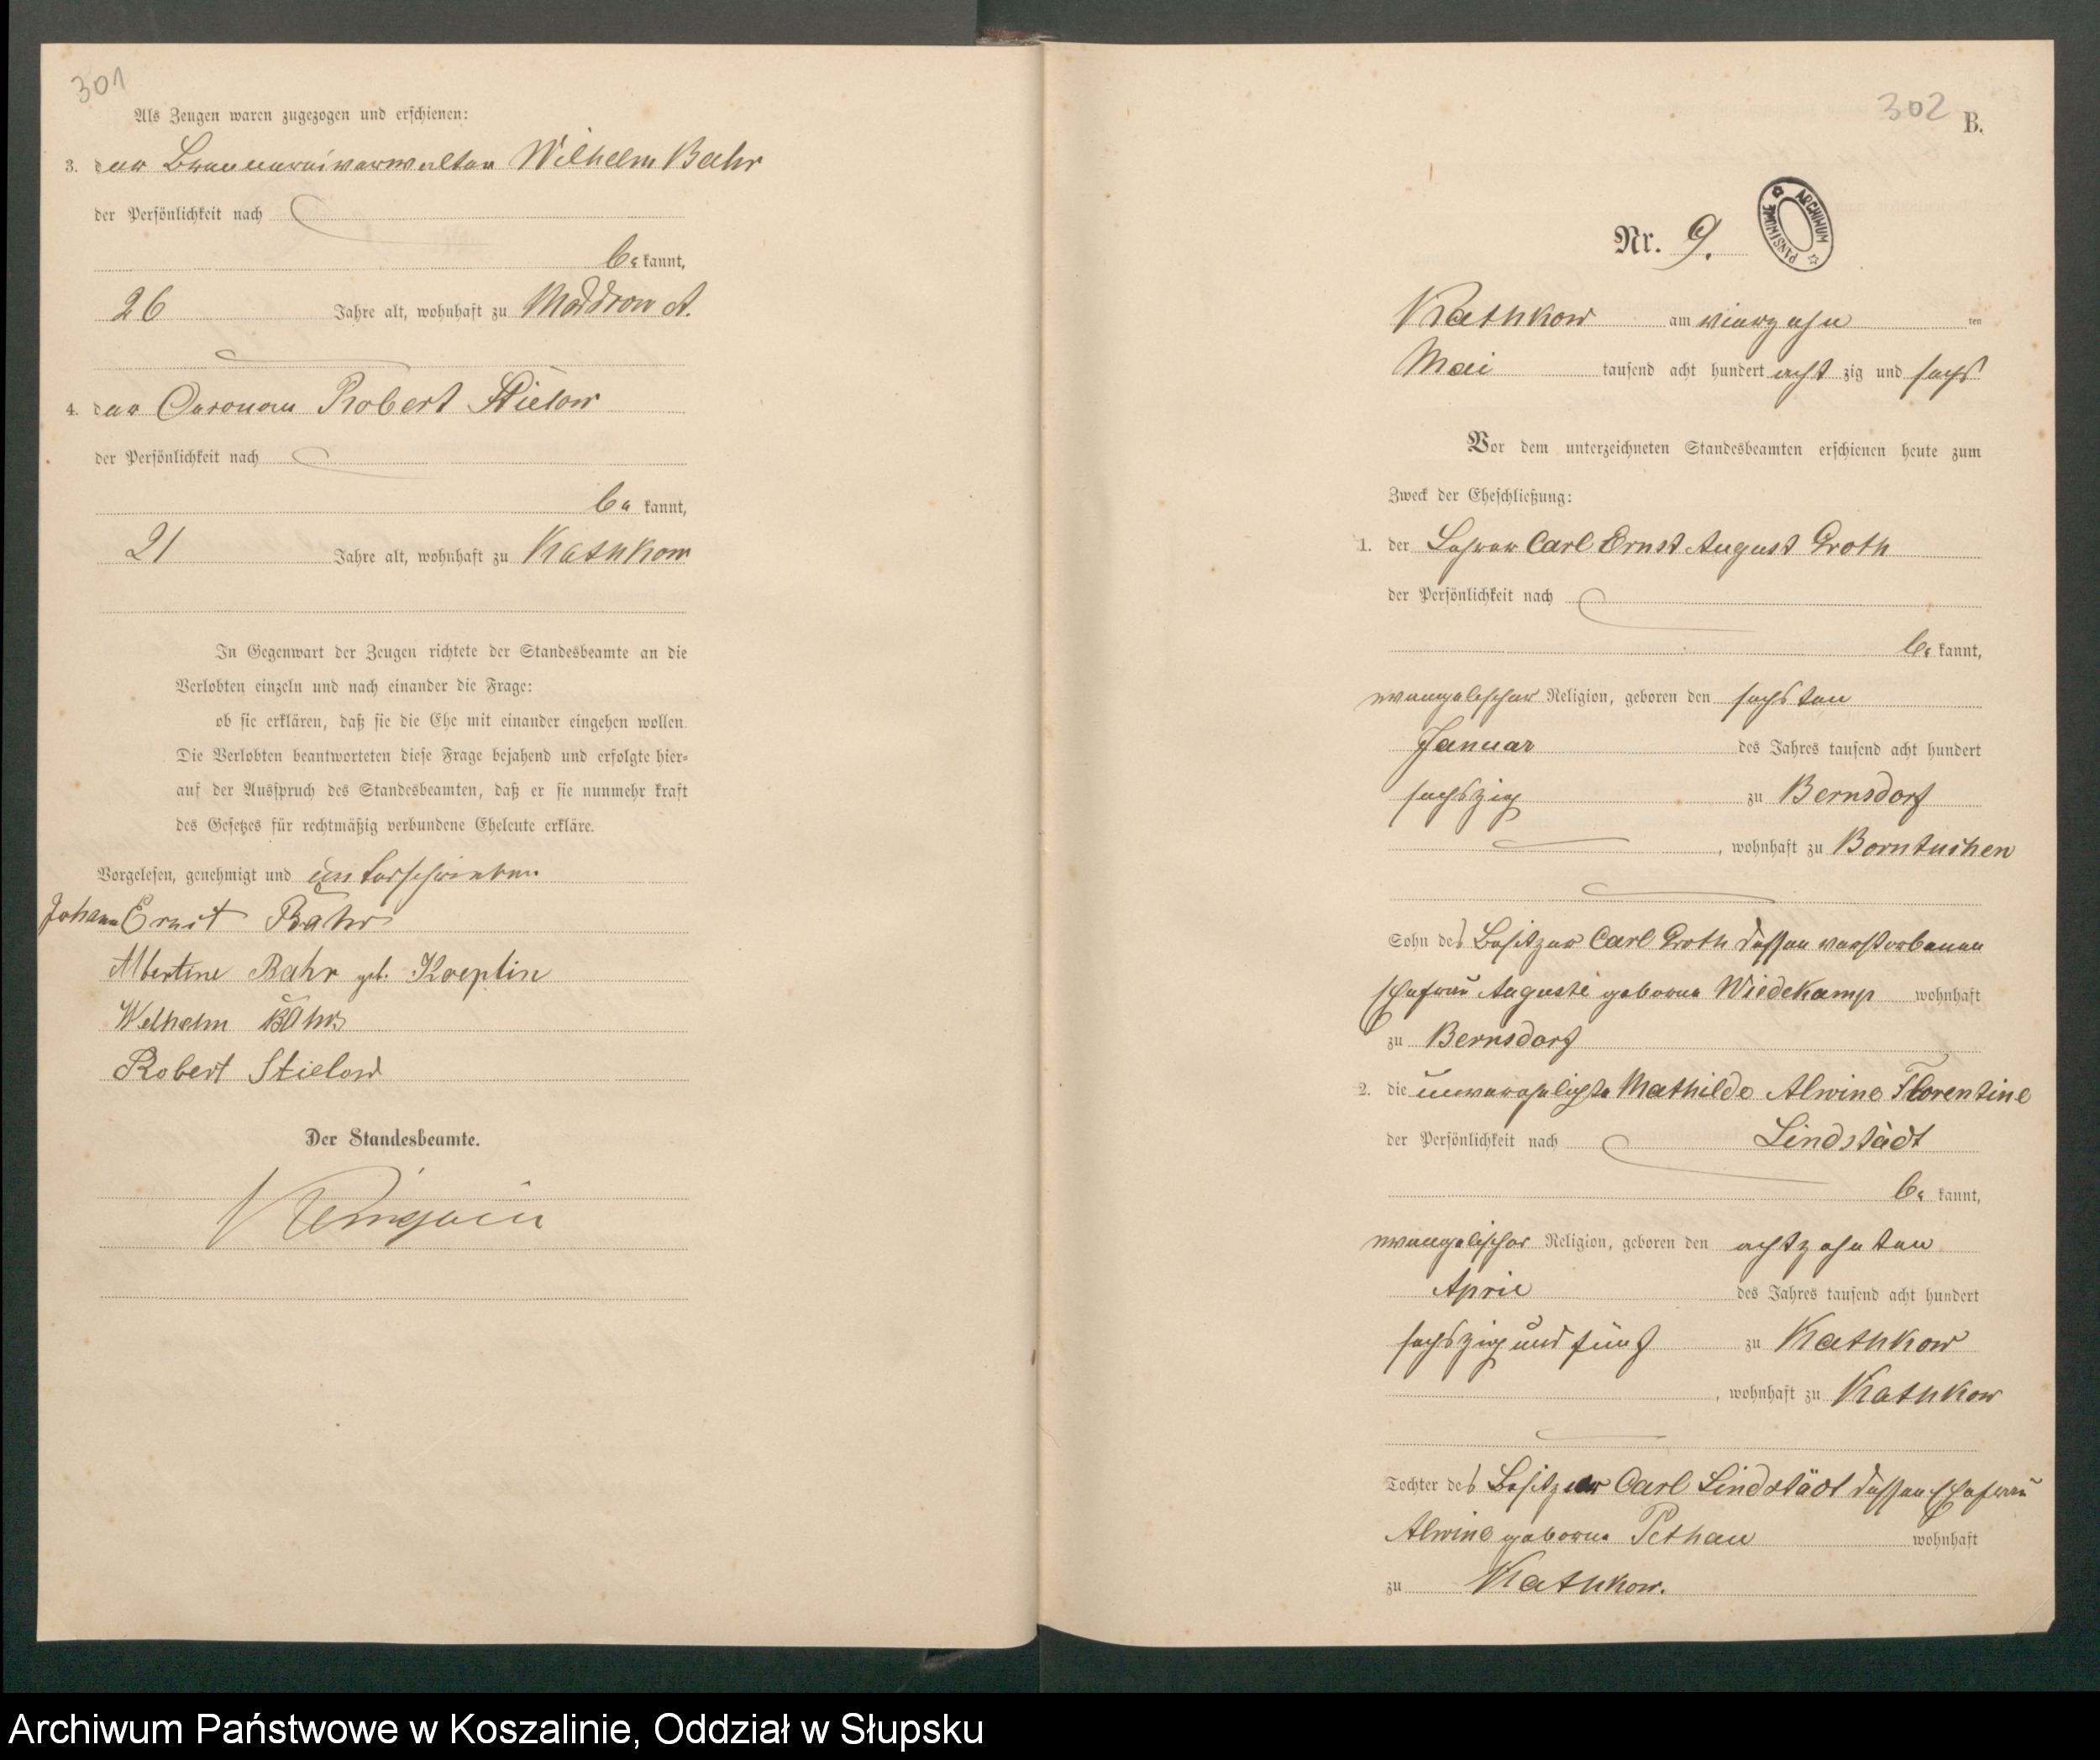 301
Als Zeugen waren zugezogen und erschienen:
3. der Brennereiverwalter Wilhelm Bahr
der Persönlichkeit nach
be kannt,
26 Jahre alt, wohnhaft zu Moddrow A.
4. der Oeconom Robert Stielow
der Persönlichkeit nach
be kannt,
21 Jahre alt, wohnhaft zu Kathkow
In Gegenwart der Zeugen richtete der Standesbeamte an die
Verlobten einzeln und nach einander die Frage:
ob sie erklären, daß sie die Ehe mit einander eingehen wollen.
Die Verlobten beantworteten diese Frage bejahend und erfolgte hier-
auf der Ausspruch des Standesbeamten, daß er sie nunmehr kraft
des Gesetzes für rechtmäßig verbundene Eheleute erkläre.
Vorgelesen, genehmigt und unterschrieben
Johann Ernst Bahr
Albertine Bahr geb. Koeplin
Wilhelm Bahr
Robert Stielow
Der Standesbeamte.
302
B.
ARCHIWUM PAŃSTWOWE
Nr. 9.
Kathkow am vierzehn ten
Mai tausend acht hundert acht zig und sechs
Vor dem unterzeichneten Standesbeamten erschienen heute zum
Zweck der Eheschließung:
1. der Lehrer Carl Ernst August Groth
der Persönlichkeit nach
be kannt,
evangelischer Religion, geboren den sechsten
Januar des Jahres tausend acht hundert
sechszig zu Bernsdorf
, wohnhaft zu Borntuchen
Sohn des Besitzer Carl Groth dessen verstorbenen
Ehefrau Auguste geborne Wiedekamp wohnhaft
zu Bernsdorf
2. die unverehelichte Mathilde Alwine Florentine
der Persönlichkeit nach Lindstädt
be kannt,
evangelischer Religion, geboren den achtzehnten
April des Jahres tausend acht hundert
sechszig und fünf zu Kathkow
, wohnhaft zu Kathkow
Tochter des Besitzer Carl Lindstädt dessen Ehefrau
Alwine geborne Pethau wohnhaft
zu Kathkow.
Archiwum Państwowe w Koszalinie, Oddział w Słupsku